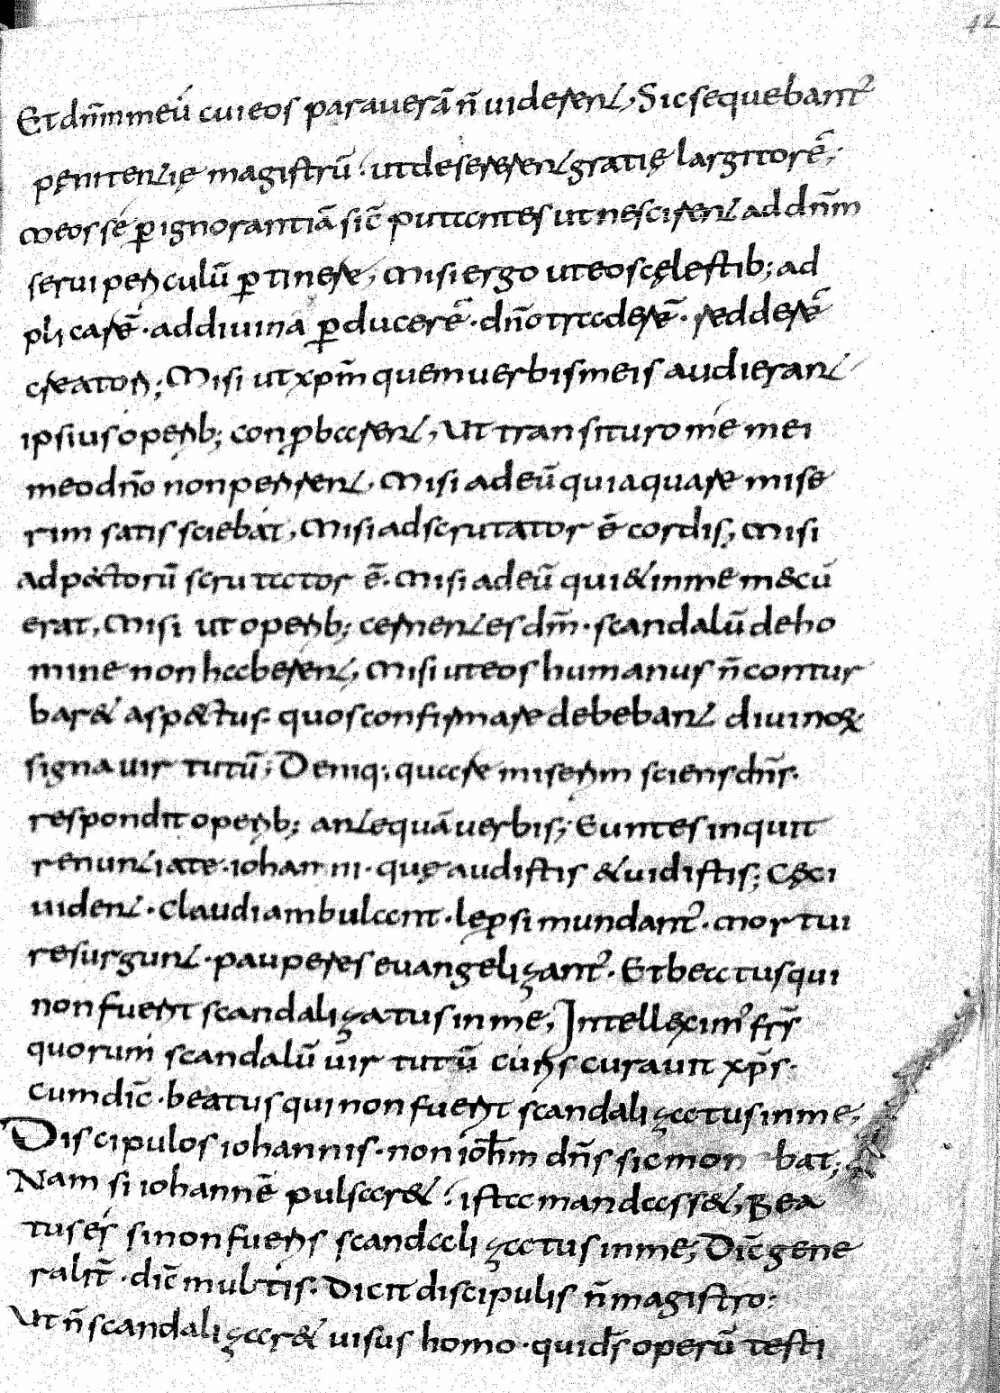 42
Et dn̄m meū cui eos paraverā n̄ viderent, Sic sequebant᷑
pęnitentię magistrū. ut desererent gratię largitorē;
Meos sé ꝑ ignorantiā sic̄ putantes ut nescirent ad dn̄m
servi periculū ꝑtinere, Misi ergo ut eos cęlestib; ad
plicarē· ad divina ꝑducerē· dn̄o traderē· redderē
creatori; Misi ut xp̄m quem verbis meis audierant
ipsius operib; conꝓbarent, Ut transituro mé mei
meo dn̄o non perirent, Misi ad eū quia quare mise
rim satis sciebat, Misi ad scrutator ē cordis, Misi
ad pectorū scrutator ē. Misi ad eū qui & in me mecū
erat, Misi ut operib; cernentes dm̄· scandalū de ho
mine non haberent, Misi ut eos humanus n̄ contur
bar& aspectus· quos confirmare debebant divinoꝝ
signa virtutū; Deniq; quare miserim sciens dn̄s·
respondit operib; antequā verbis; Euntes inquit
renuntiate· iohanni· quę audistis & vidistis; Cęci
vident· Claudi ambulant· leꝓsi mundant᷑· mortui
resurgunt· pauperes evangelizant᷑· Et beatus qui
non fuerit scandalizatus in me, Intelleximꝰ fr̄s
quorum scandalū virtutū curis curavit xp̄s·
cum dic̄· beatus qui non fuerit scandalizatus in me,
Discipulos iohannis· non ioh̄m dn̄s sic mon bat;
Nam si iohannē pulsar&· ista mandass&, Bea
tus es si non fueris scandalizatus in me; Dic̄ gene
ralit̄· dic̄ multis· Dicit discipulis n̄ magistro:
Ut n̄ scandalizar& visus homo· qui dī operū testi